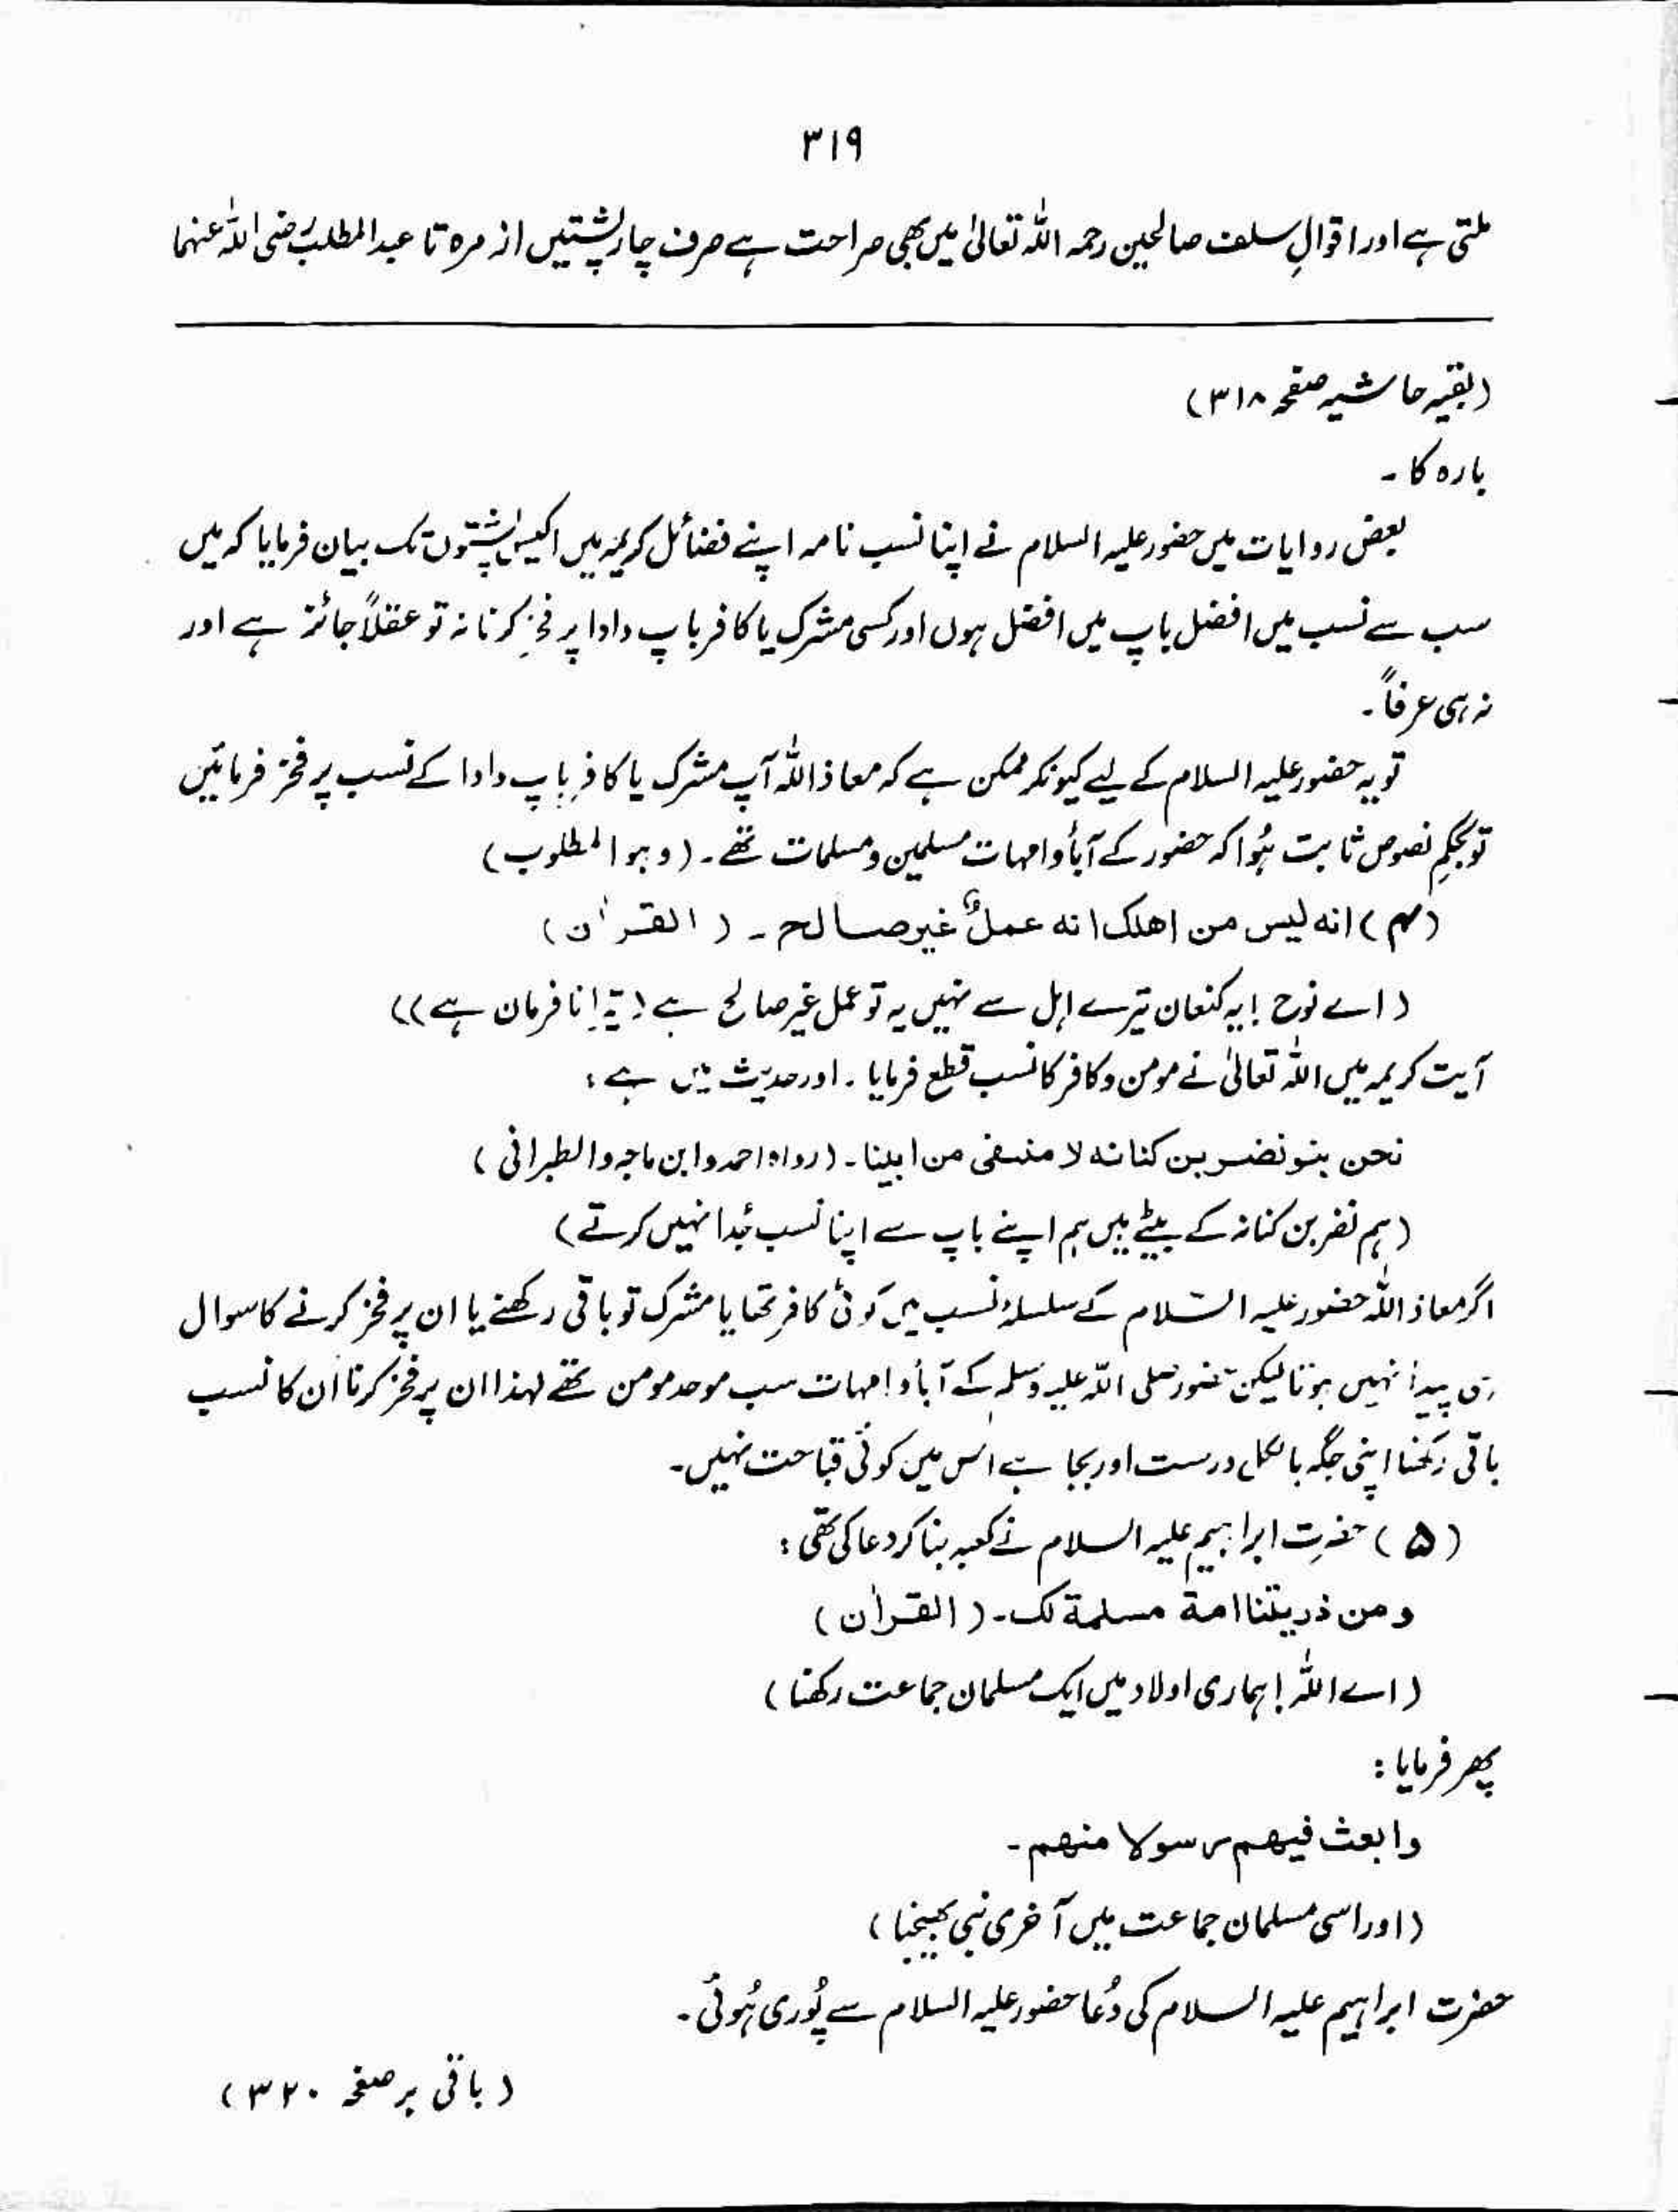 ۳۱۹
ملتی ہے اور اقوالِ سلف صالحین رحمہ اللہ تعالیٰ میں بھی صراحت ہے صرف چار پشتیں از مرہ تا عبدالمطلب رضی اللہ عنہما
(بقیہ حاشیہ صفحہ ۳۱۸)
بارہ کا ۔
بعض روایات میں حضور علیہ السلام نے اپنا نسب نامہ اپنے فضائل کریمہ میں اکیس پشتوں تک بیان فرمایا کہ میں
سب سے نسب میں افضل باپ میں افضل ہوں اور کسی مشرک یا کافر باپ دادا پر فخر کرنا نہ تو عقلاً جائز ہے اور
نہ ہی عرفاً ۔
تو یہ حضور علیہ السلام کے لیے کیونکر ممکن ہے کہ معاذ اللہ آپ مشرک یا کافر باپ دادا کے نسب پر فخر فرمائیں
تو بحکمِ نصوص ثابت ہُوا کہ حضور کے آبأ و امہات مسلمین و مسلمات تھے ۔ (وہو المطلوب)
(۴) انہ لیس من اھلک انہ عملٌ غیر صالح ۔ (القراٰن)
(اے نوح! یہ کنعان تیرے اہل سے نہیں یہ تو عمل غیر صالح ہے (یہ نافرمان ہے))
آیت کریمہ میں اللہ تعالیٰ نے مومن و کافر کا نسب قطع فرمایا ۔ اور حدیث میں ہے :
نحن بنو نضر بن کنانہ لا منتفی من ابینا ۔ (رواہ احمد و ابن ماجہ والطبرانی)
(ہم نضر بن کنانہ کے بیٹے ہیں ہم اپنے باپ سے اپنا نسب جُدا نہیں کرتے)
اگر معاذ اللہ حضور علیہ السّلام کے سلسلۂ نسب میں کوئی کافر تھا یا مشرک تو باقی رکھنے یا ان پر فخر کرنے کا سوال
ہی پیدا نہیں ہوتا لیکن حضور صلی اللہ علیہ وسلم کے آبأ و امہات سب موحد مومن تھے لہذا ان پر فخر کرنا ان کا نسب
باقی رکھنا اپنی جگہ بالکل درست اور بجا ہے اس میں کوئی قباحت نہیں ۔
(۵) حضرت ابراہیم علیہ السلام نے کعبہ بنا کر دعا کی تھی :
ومن ذریتنا امة مسلمة لک ۔ (القراٰن)
(اے اللہ! ہماری اولاد میں ایک مسلمان جماعت رکھنا)
پھر فرمایا :
وابعث فیھم رسولا منھم ۔
(اور اسی مسلمان جماعت میں آخری نبی بھیجنا)
حضرت ابراہیم علیہ السلام کی دُعا حضور علیہ السلام سے پُوری ہُوئی ۔
(باقی بر صفحہ ۳۲۰)